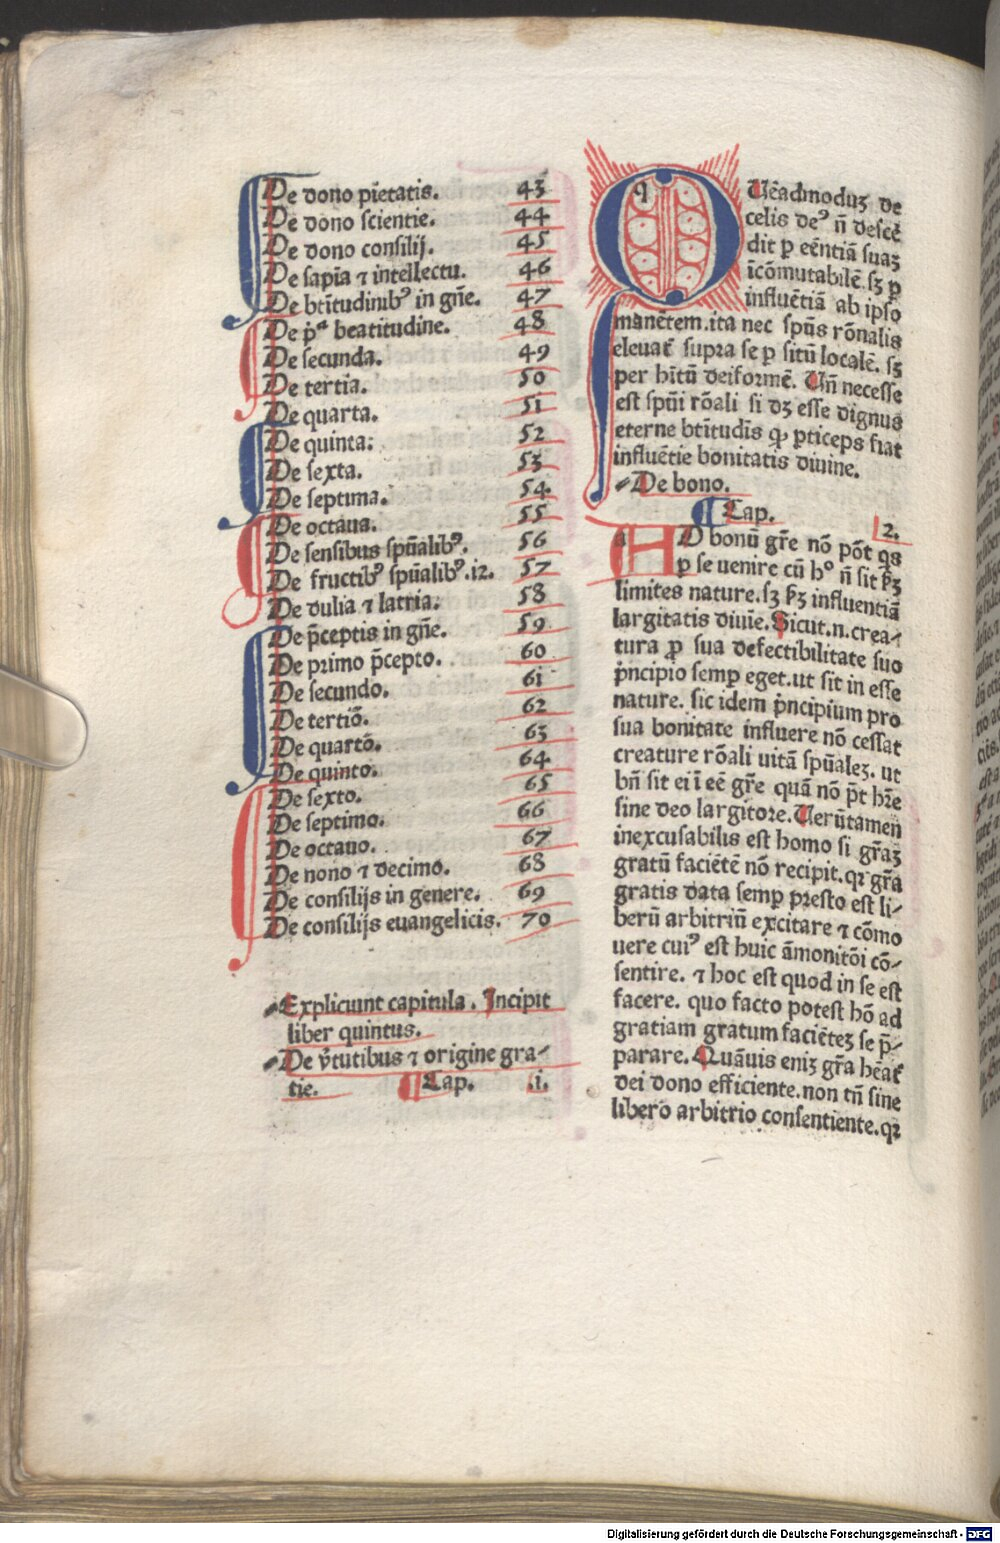 De dono pietatis. 43
De dono scientie. 44
De dono consilij. 45
De sapīa ⁊ intellectu. 46
De bt̄itudinibꝰ in gn̄e. 47
De pª beatitudine. 48
De secunda. 49
De tertia. 50
De quarta. 51
De quinta: 52
De sexta. 53
De septima. 54
De octaua. 55
De sensibus spūalibꝰ. 56
De fructibꝰ spūalibꝰ.12. 57
De dulia ⁊ latria: 58
De p̄ceptis in gn̄e. 59
De primo p̄cepto. 60
De secundo. 61
De tertiō. 62
De quartō. 63
De quinto. 64
De sexto. 65
De septimo. 66
De octauo. 67
De nono ⁊ decimo. 68
De consilijs in genere. 69
De consilijs euangelicis. 70
Expliciunt capitula. Incipit
liber quintus.
De v̓tutibus ⁊ origine gra⸗
tie. Cap. .i.
QUēadmoduꝫ de
celis deꝰ n̄ descē
dit ꝑ eēntiā suaꝫ
īcōmutabilē.sꝫ ꝑ
influētiā ab ipso
manētem.ita nec spūs rōnalis
eleuat᷑ supra se ꝑ sitū localē. sꝫ
per hītū deiformē. Un̄ necesse
est spūi rōali si dꝫ esse dignus
eterne bt̄itudīs ꝙ ꝑticeps fiat
influētie bonitatis diuine.
De bono.
Cap. 2.
AD bonū gr̄e nō pōt qͥs
ꝑ se uenire cū h° n̄ sit p̓ꝫ
limites nature.sꝫ p̓ꝫ influentiā
largitatis diuīe.Sicut.n.crea⸗
tura ꝓ sua defectibilitate suo
pͥncipio semꝑ eget.ut sit in esse
nature. sic idem pͥncipium pro
sua bonitate influere nō cessat
creature rōali uitā spūaleꝫ. ut
bn̄ sit ei ī eē gr̄e quā nō p̄t hr̄e
sine deo largitore.Uerūtamen
inexcusabilis est homo si gr̄aꝫ
gratū faciētē nō recipit.qꝛ gr̄a
gratis data semꝑ presto est li⸗
berū arbitriū excitare ⁊ cōmo
uere cuiꝰ est huic āmonitōi cō⸗
sentire. ⁊ hoc est quod in se est
facere. quo facto potest hō ad
gratiam gratum faciēteꝫ se p̄⸗
parare. Quāuis eniꝫ gr̄a hēat᷑
dei dono efficiente.non tn̄ sine
libero arbitrio consentiente.qꝛ
Digitalisierung gefördert durch die Deutsche Forschungsgemeinschaft - DFG